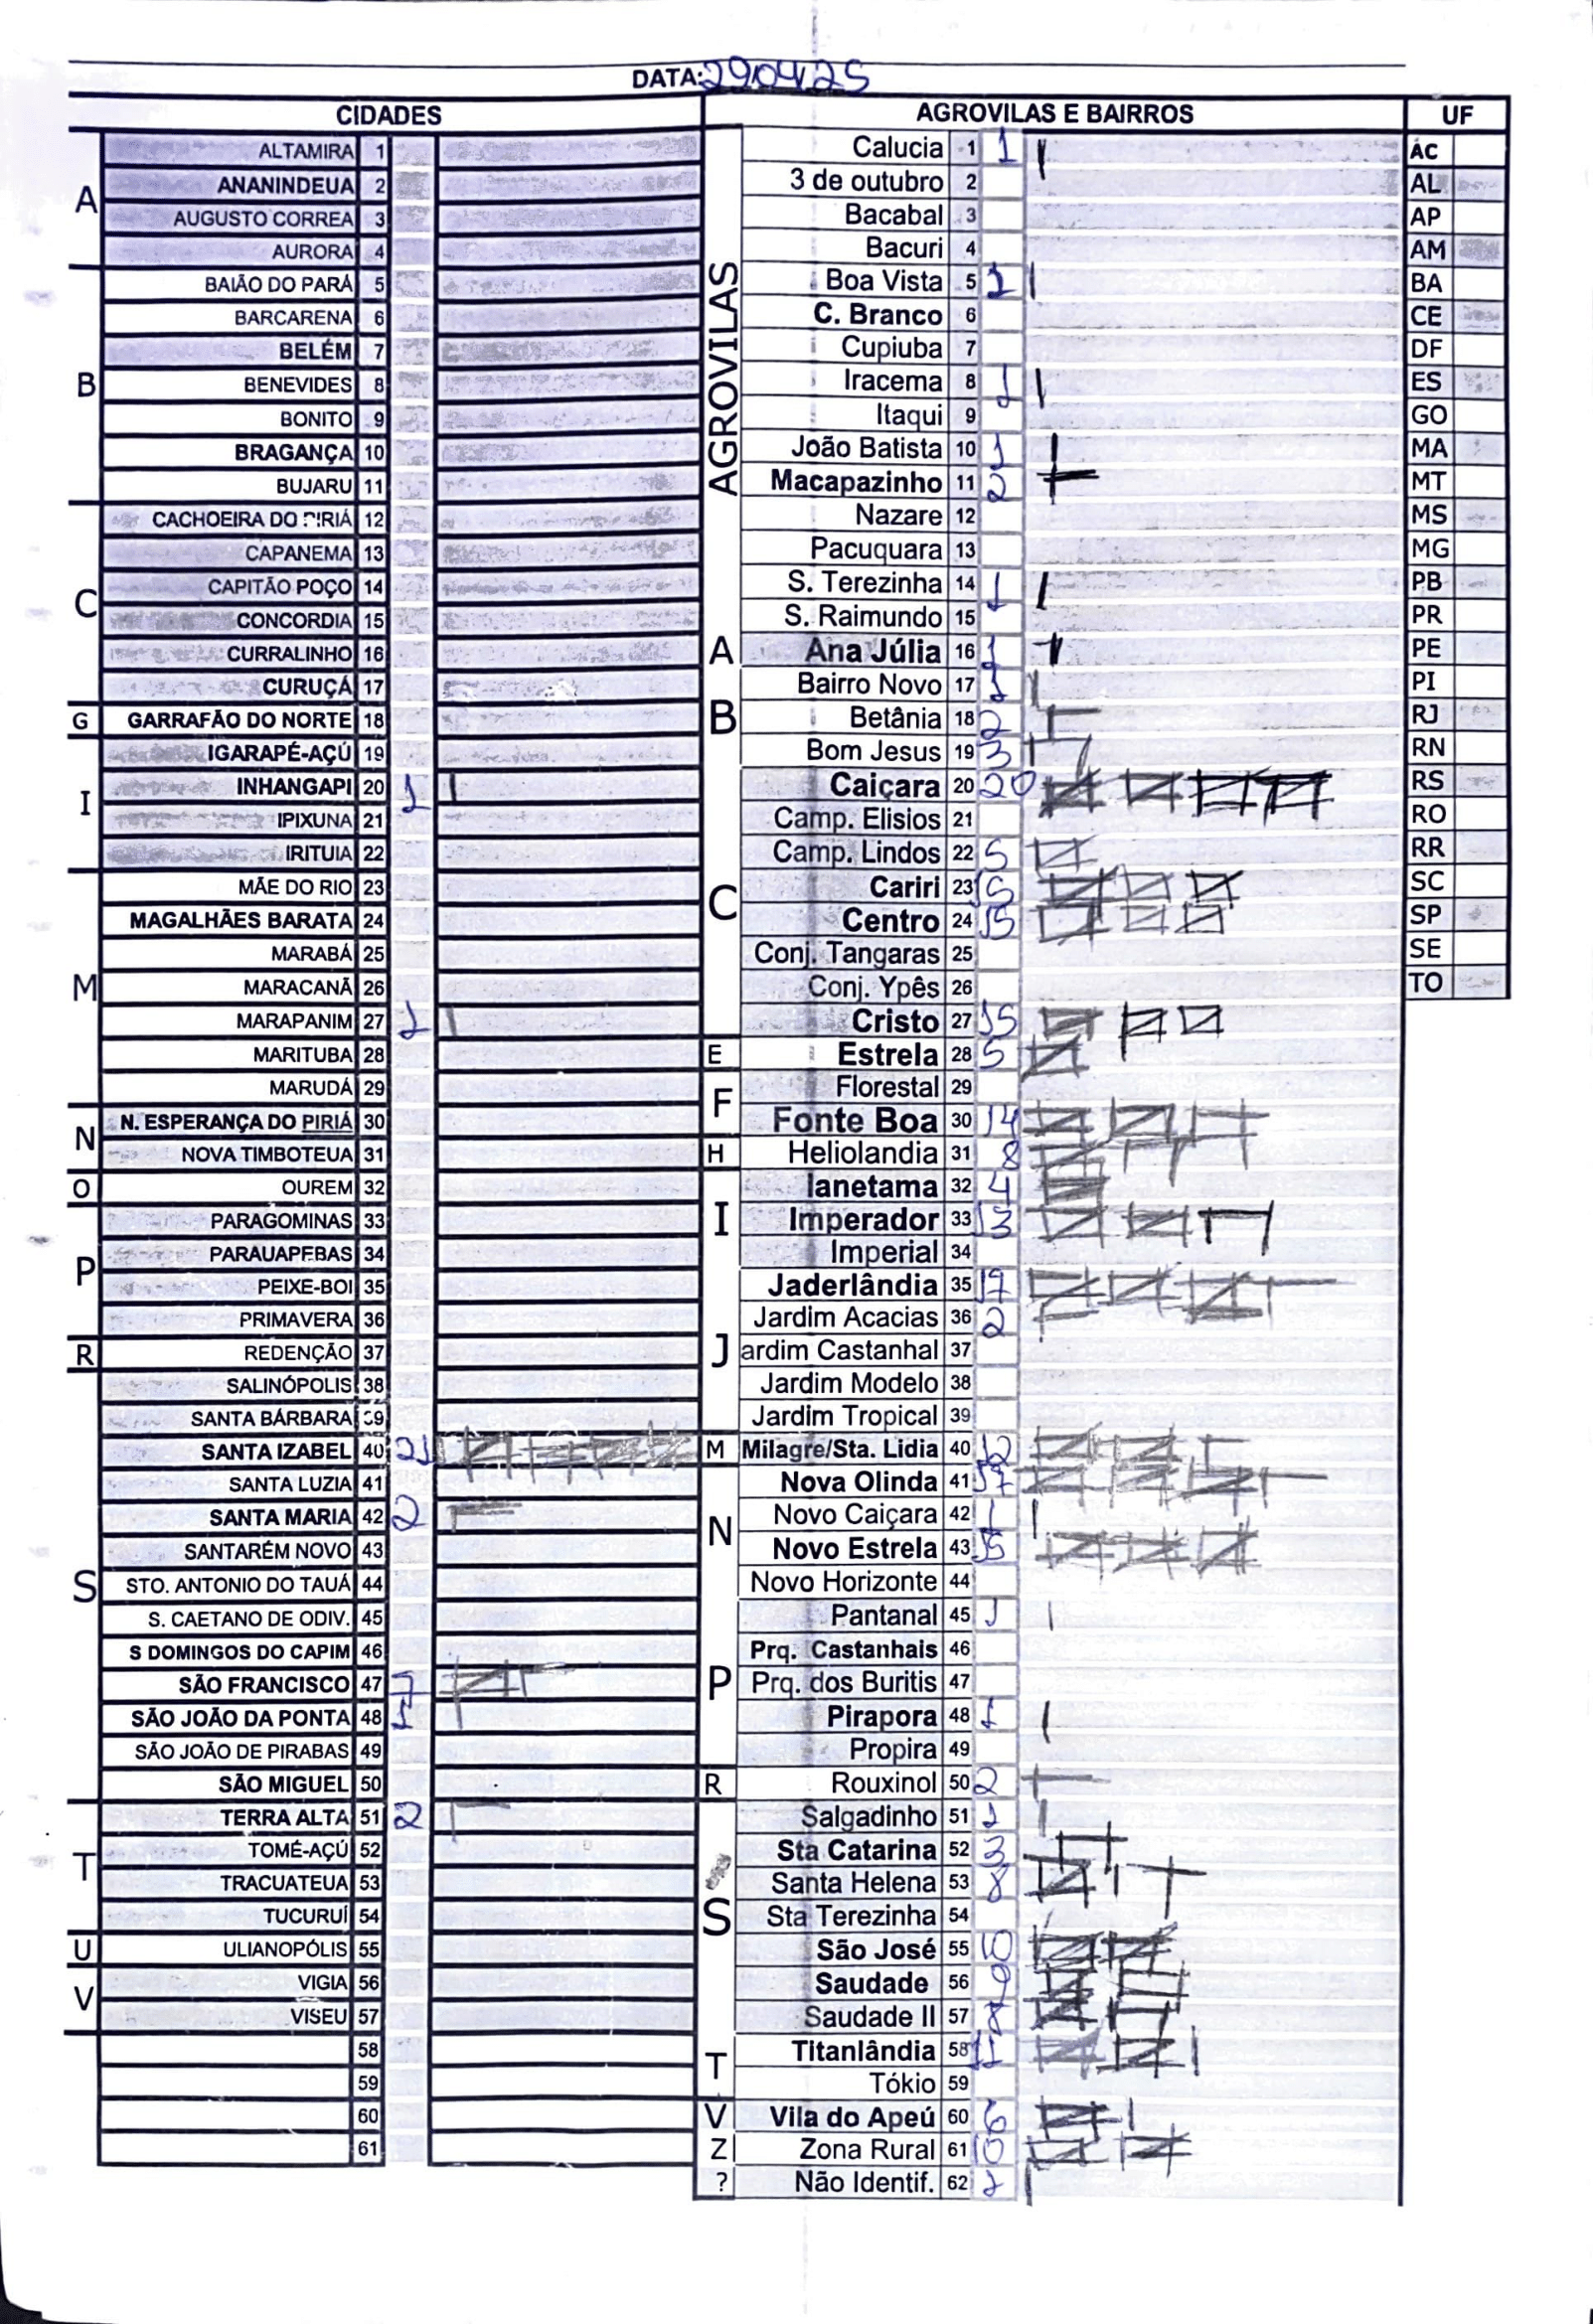 DATA: 290425
CIDADES
A
ALTAMIRA 1
ANANINDEUA 2
AUGUSTO CORREA 3
AURORA 4
B
BAIÃO DO PARÁ 5
BARCARENA 6
BELÉM 7
BENEVIDES 8
BONITO 9
BRAGANÇA 10
BUJARU 11
C
CACHOEIRA DO PIRIÁ 12
CAPANEMA 13
CAPITÃO POÇO 14
CONCORDIA 15
CURRALINHO 16
CURUÇÁ 17
G
GARRAFÃO DO NORTE 18
I
IGARAPÉ-AÇÚ 19
INHANGAPI 20 1
IPIXUNA 21
IRITUIA 22
M
MÃE DO RIO 23
MAGALHÃES BARATA 24
MARABÁ 25
MARACANÃ 26
MARAPANIM 27 1
MARITUBA 28
MARUDÁ 29
N
N. ESPERANÇA DO PIRIÁ 30
NOVA TIMBOTEUA 31
O
OUREM 32
P
PARAGOMINAS 33
PARAUAPEBAS 34
PEIXE-BOI 35
PRIMAVERA 36
R
REDENÇÃO 37
S
SALINÓPOLIS 38
SANTA BÁRBARA 39
SANTA IZABEL 40 21
SANTA LUZIA 41
SANTA MARIA 42 2
SANTARÉM NOVO 43
STO. ANTONIO DO TAUÁ 44
S. CAETANO DE ODIV. 45
S DOMINGOS DO CAPIM 46
SÃO FRANCISCO 47 7
SÃO JOÃO DA PONTA 48 1
SÃO JOÃO DE PIRABAS 49
SÃO MIGUEL 50
T
TERRA ALTA 51 2
TOMÉ-AÇÚ 52
TRACUATEUA 53
TUCURUÍ 54
U
ULIANOPÓLIS 55
V
VIGIA 56
VISEU 57
58
59
60
61
AGROVILAS E BAIRROS
AGROVILAS
Calucia 1 1
3 de outubro 2
Bacabal 3
Bacuri 4
Boa Vista 5 1
C. Branco 6
Cupiuba 7
Iracema 8 1
Itaqui 9
João Batista 10 1
Macapazinho 11 2
Nazare 12
Pacuquara 13
S. Terezinha 14 1
S. Raimundo 15
A
Ana Júlia 16 1
B
Bairro Novo 17 1
Betânia 18 2
Bom Jesus 19 3
C
Caiçara 20 20
Camp. Elisios 21
Camp. Lindos 22 5
Cariri 23 15
Centro 24 15
Conj. Tangaras 25
Conj. Ypês 26
Cristo 27 15
E
Estrela 28 5
F
Florestal 29
Fonte Boa 30 14
H
Heliolandia 31 8
I
Ianetama 32 4
Imperador 33 13
Imperial 34
J
Jaderlândia 35 17
Jardim Acacias 36 2
ardim Castanhal 37
Jardim Modelo 38
Jardim Tropical 39
M
Milagre/Sta. Lidia 40 12
N
Nova Olinda 41 17
Novo Caiçara 42 1
Novo Estrela 43 15
Novo Horizonte 44
P
Pantanal 45 1
Prq. Castanhais 46
Prq. dos Buritis 47
Pirapora 48 1
Propira 49
R
Rouxinol 50 2
S
Salgadinho 51 1
Sta Catarina 52 3
Santa Helena 53 8
Sta Terezinha 54
São José 55 10
Saudade 56 9
Saudade II 57 8
T
Titanlândia 58 11
Tókio 59
V
Vila do Apeú 60 6
Z
Zona Rural 61 10
?
Não Identif. 62 1
UF
AC
AL
AP
AM
BA
CE
DF
ES
GO
MA
MT
MS
MG
PB
PR
PE
PI
RJ
RN
RS
RO
RR
SC
SP
SE
TO